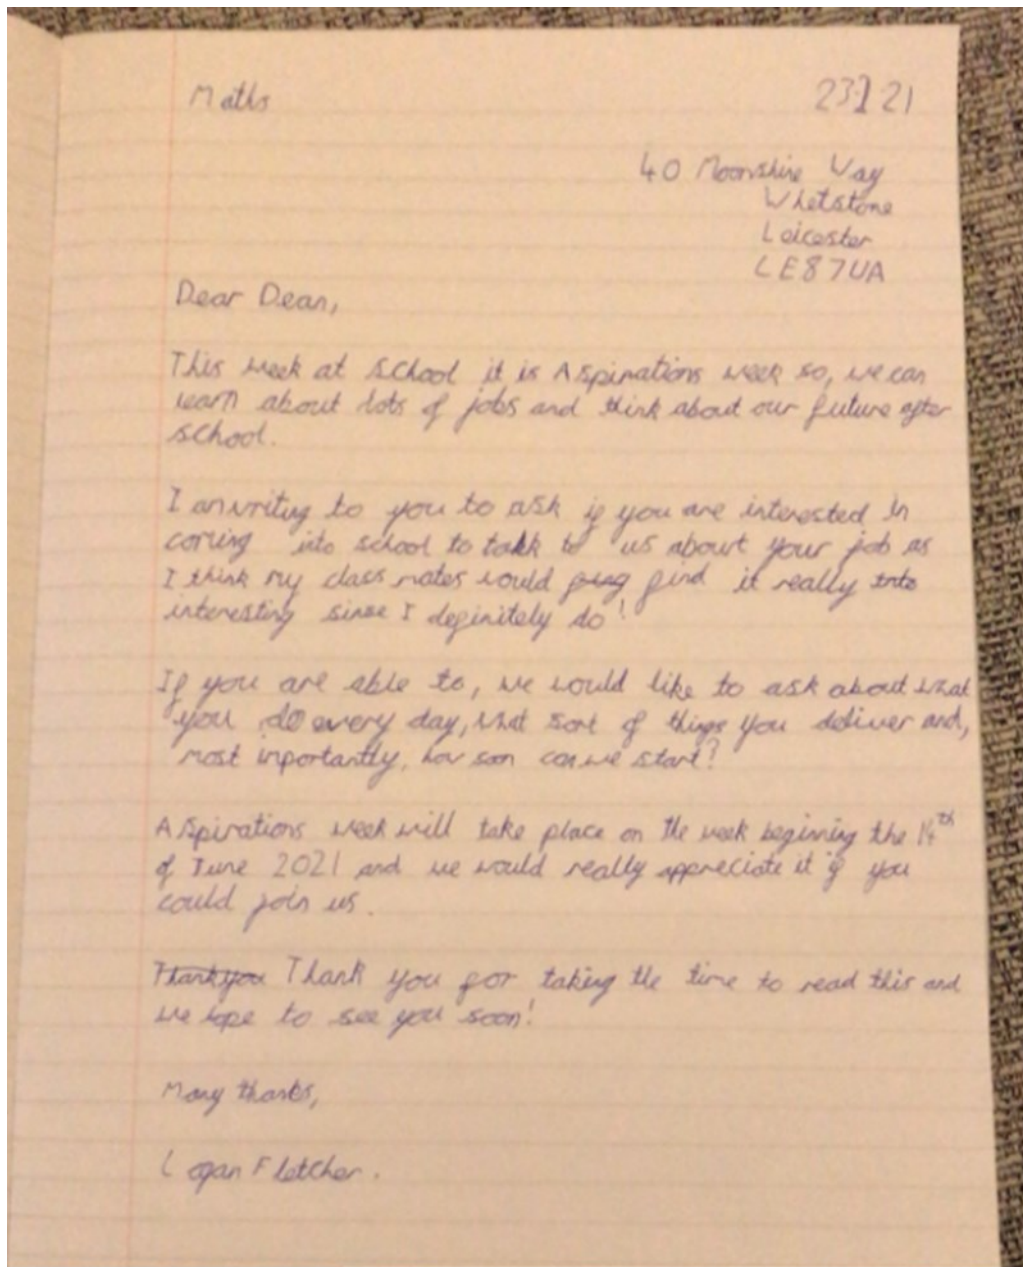 Maths
21
40 Moonshine Way
Whetstone
Leicester
LE8 7UA
Dear Dean,
This week at school it is Aspirations week so, we can
learn about lots of jobs and think about our future after
school.
I am writing to you to ask if you are interested in
coming into school to talk to us about your job as
I think my class mates would find it really
interesting since I definitely do!
If you are able to, we would like to ask about what
you do every day, what sort of things you deliver and,
most importantly, how soon can we start?
Aspirations week will take place on the week beginning the 14th
of June 2021 and we would really appreciate it if you
could join us.
Thankyou Thank you for taking the time to read this and
we hope to see you soon!
Many thanks,
Logan Fletcher.